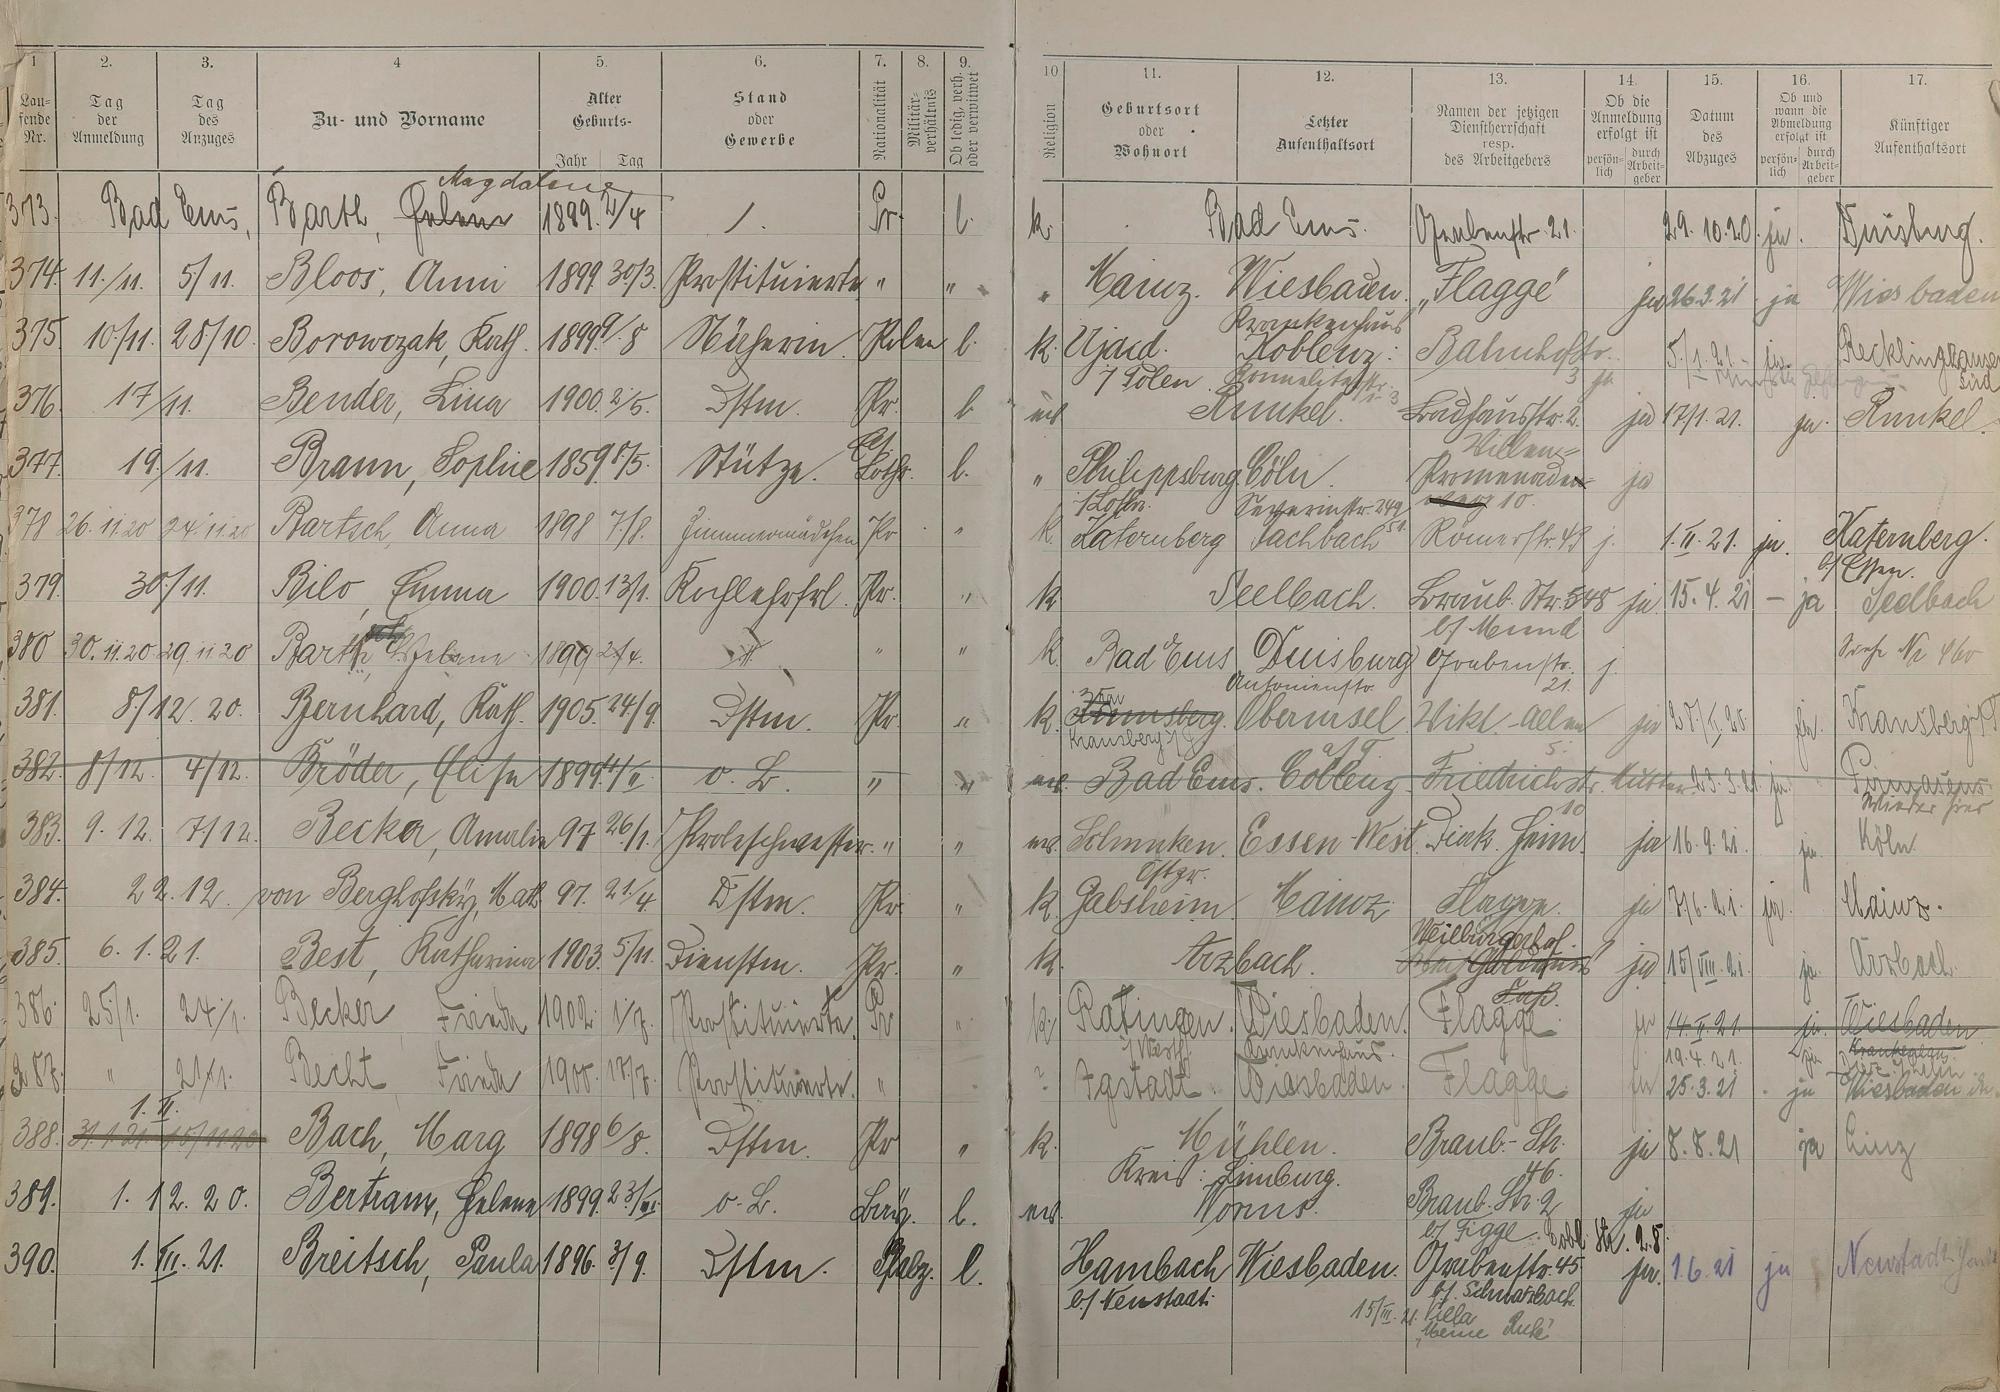 1 2. 3. 4 5. 6. 7. 8. 9. 10 11. 12. 13. 14. 15. 16. 17.
Lau-
fende
Nr.
Tag
der
Anmeldung
Tag
des
Anzuges
Zu- und Vorname
Alter
Geburts-
Jahr Tag
Stand
oder
Gewerbe
Nationalität
Militär-
verhältnis
Ob ledig, verh.
oder verwitwet
Religion
Geburtsort
oder
Wohnort
Letzter
Aufenthaltsort
Namen der jetzigen
Dienstherrschaft
resp.
des Arbeitgebers
Ob die
Anmeldung
erfolgt ist
persön-
lich
durch
Arbeit-
geber
Datum
des
Abzuges
Ob und
wann die
Abmeldung
erfolgt ist
persön-
lich
durch
Arbeit-
geber
Künftiger
Aufenthaltsort
Magdalena
373. Bad Ems, Barth, Helene 1899. 2/4 Pr. l. k. Bad Ems. Grabenstr. 21. 29. 10. 20. ja. Duisburg.
374. 11./11. 5/11. Bloos, Anni 1899 30/3. Prostituierte " " " Mainz. Wiesbaden. „Flagge" ja 26.3.21 ja Wiesbaden
Krankenhaus
375. 10/11. 28/10. Borowczak, Kath. 1899 9/8 Näherin. Polen l. k. Ujazd. Koblenz: Bahnhofstr. 5./1.21. ja. Recklinghausen
/ Polen. 3 ja Süd
376. 17/11. Bender, Lina 1900. 2/5. Dstm. Pr. l. Runkel. 2. ja 17/1. 21. ja. Runkel.
Villen-
377. 19./11. Braun, Sophie 1859 Stütze. Lothr. l. " Philippsburg Cöln. Promenaden ja
/Lothr. Severinstr. 249 weg 10.
378 26.11.20 24.11.20 Bartsch, Anna 1898 7/8. Zimmermädchen Pr " k. Katernberg Fachbach Römerstr. 42 j. 1.II.21. ja. Katernberg.
b/Essen.
379. 30./11. Bilo, Emma 1900. 13/1. Kochlehrfrl. Pr. " k. Seelbach. Braub. Str. 548 ja 15.4.21 – ja Seelbach
b/ Mund
380 30.11.20 29.11 20 Barth, Helene 1899 2/4. " " k. Bad Ems Duisburg Grabenstr. j. Siehe Nr 460
Antonienstr. 21.
381. 8/12. 20. Bernhard, Käth. 1905. 24/9. Dstm. Pr. " k. Oberursel Vikt.-Allee ja ja. Kransberg i/T
Kransberg i/T a/T 5.
382. 8/12. 4/12. Bröder, Elise 1899. o. B. " " Bad Ems. Coblenz Friedrichstr. Mutter 23.3.21 ja. Pirmasens
10 Wieder hier
383. 9. 12. 7/12. Becker, Amalie 97 26/1. Probeschwester. " " Essen-West. Diak. Heim. ja 16.9.21. ja. Köln
Ostpr.
384. 22. 12. von Berghofsky, Math. 97. 21./4. Dstm. Pr. " k. Gabsheim. Mainz Flagge. ja 7/6.21. ja. Mainz.
Weilburgerhof.
385. 6. 1. 21. Best, Katharina 1903. 5/11. Dienstm. Pr. " k. Arzbach. ja 15/VIII.21 ja. Arzbach
386. 25/1. 24/1. Becker Frieda 1902. 1/7. Prostituierte. Pr " k. Ratingen. Wiesbaden. Flagge. ja 14.II.21. ja. Wiesbaden
Krankenhaus. 19.4.21.
387. " 21/1. Becht Frieda 1900. 17/7. Prostituierte. " ? Igstadt. Wiesbaden. Flagge ja 25.3.21 ja Wiesbaden
1. II.
388. 31.1 21. Bach, Marg 1898 6/8. Dstm. Pr " k. Mühlen. Braub.-Str. ja 8.8.21 ja Linz
Kreis: Limburg. 46.
389. 1. 12. 20. Bertram, Helene 1899. o. B. l. Worms. Braub. Str. 2 ja
b/ Figge. Cobl. Str. 28.
390. 1. III. 21. Breitsch, Paula 1896. 3/9. Dstm. Pfalz. l. Hambach Wiesbaden. Grabenstr. 45 ja. 1.6.21 ja Neustadt
b/ Neustadt. b/ Schwarzbach.
15/III. 21. Villa
„Meine Ruh"